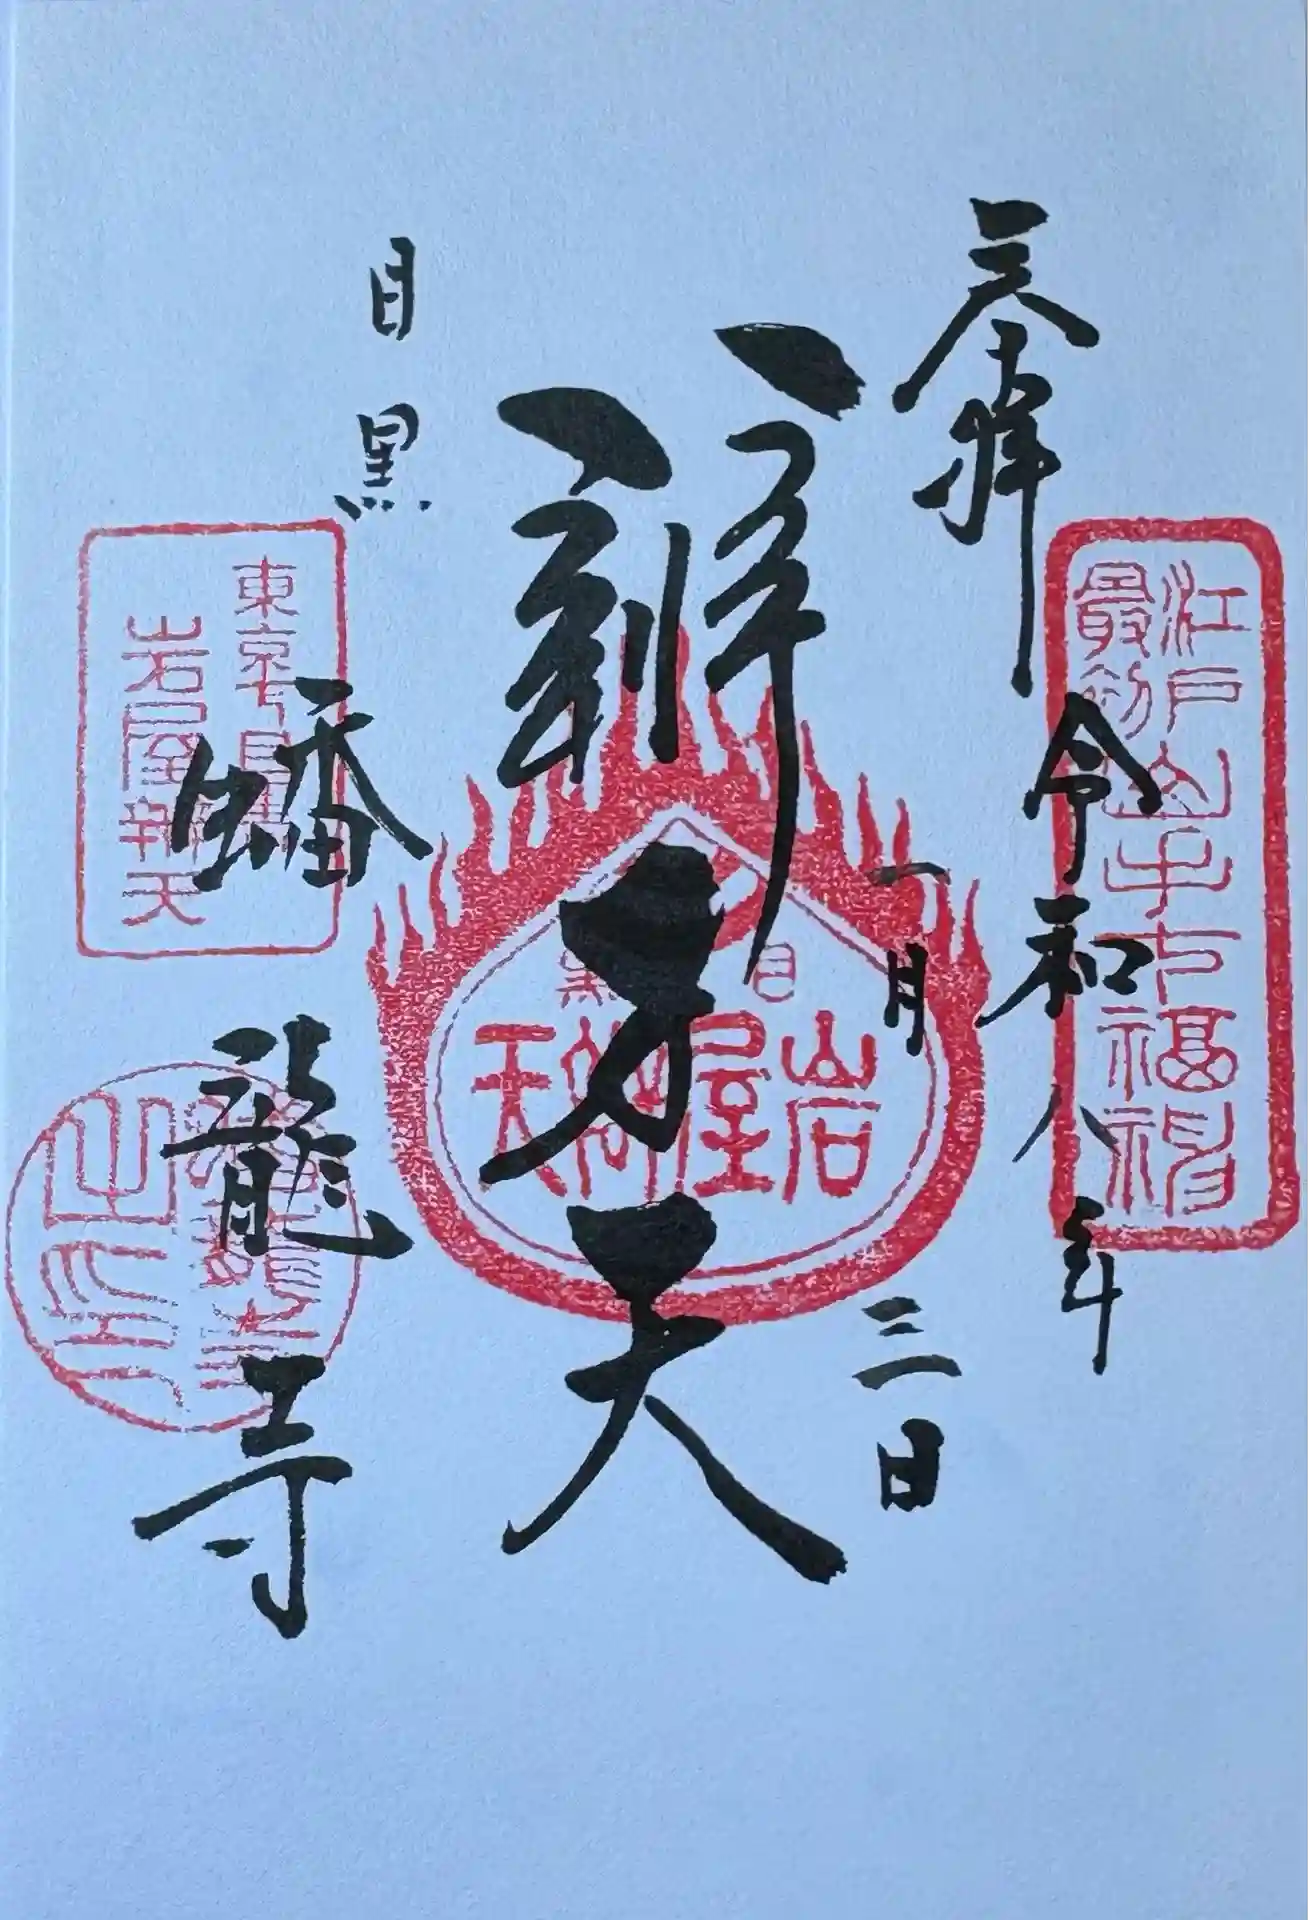 奉拝
令和八年
一月三日
辨才天
目黒
蟠龍寺
江戸山手七福神
最初
目黒
岩屋辨天
東京目黒
岩屋辨天
蟠龍寺
之印